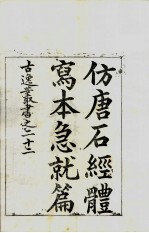 仿唐石經體
寫本急就篇
古逸叢書之二十二